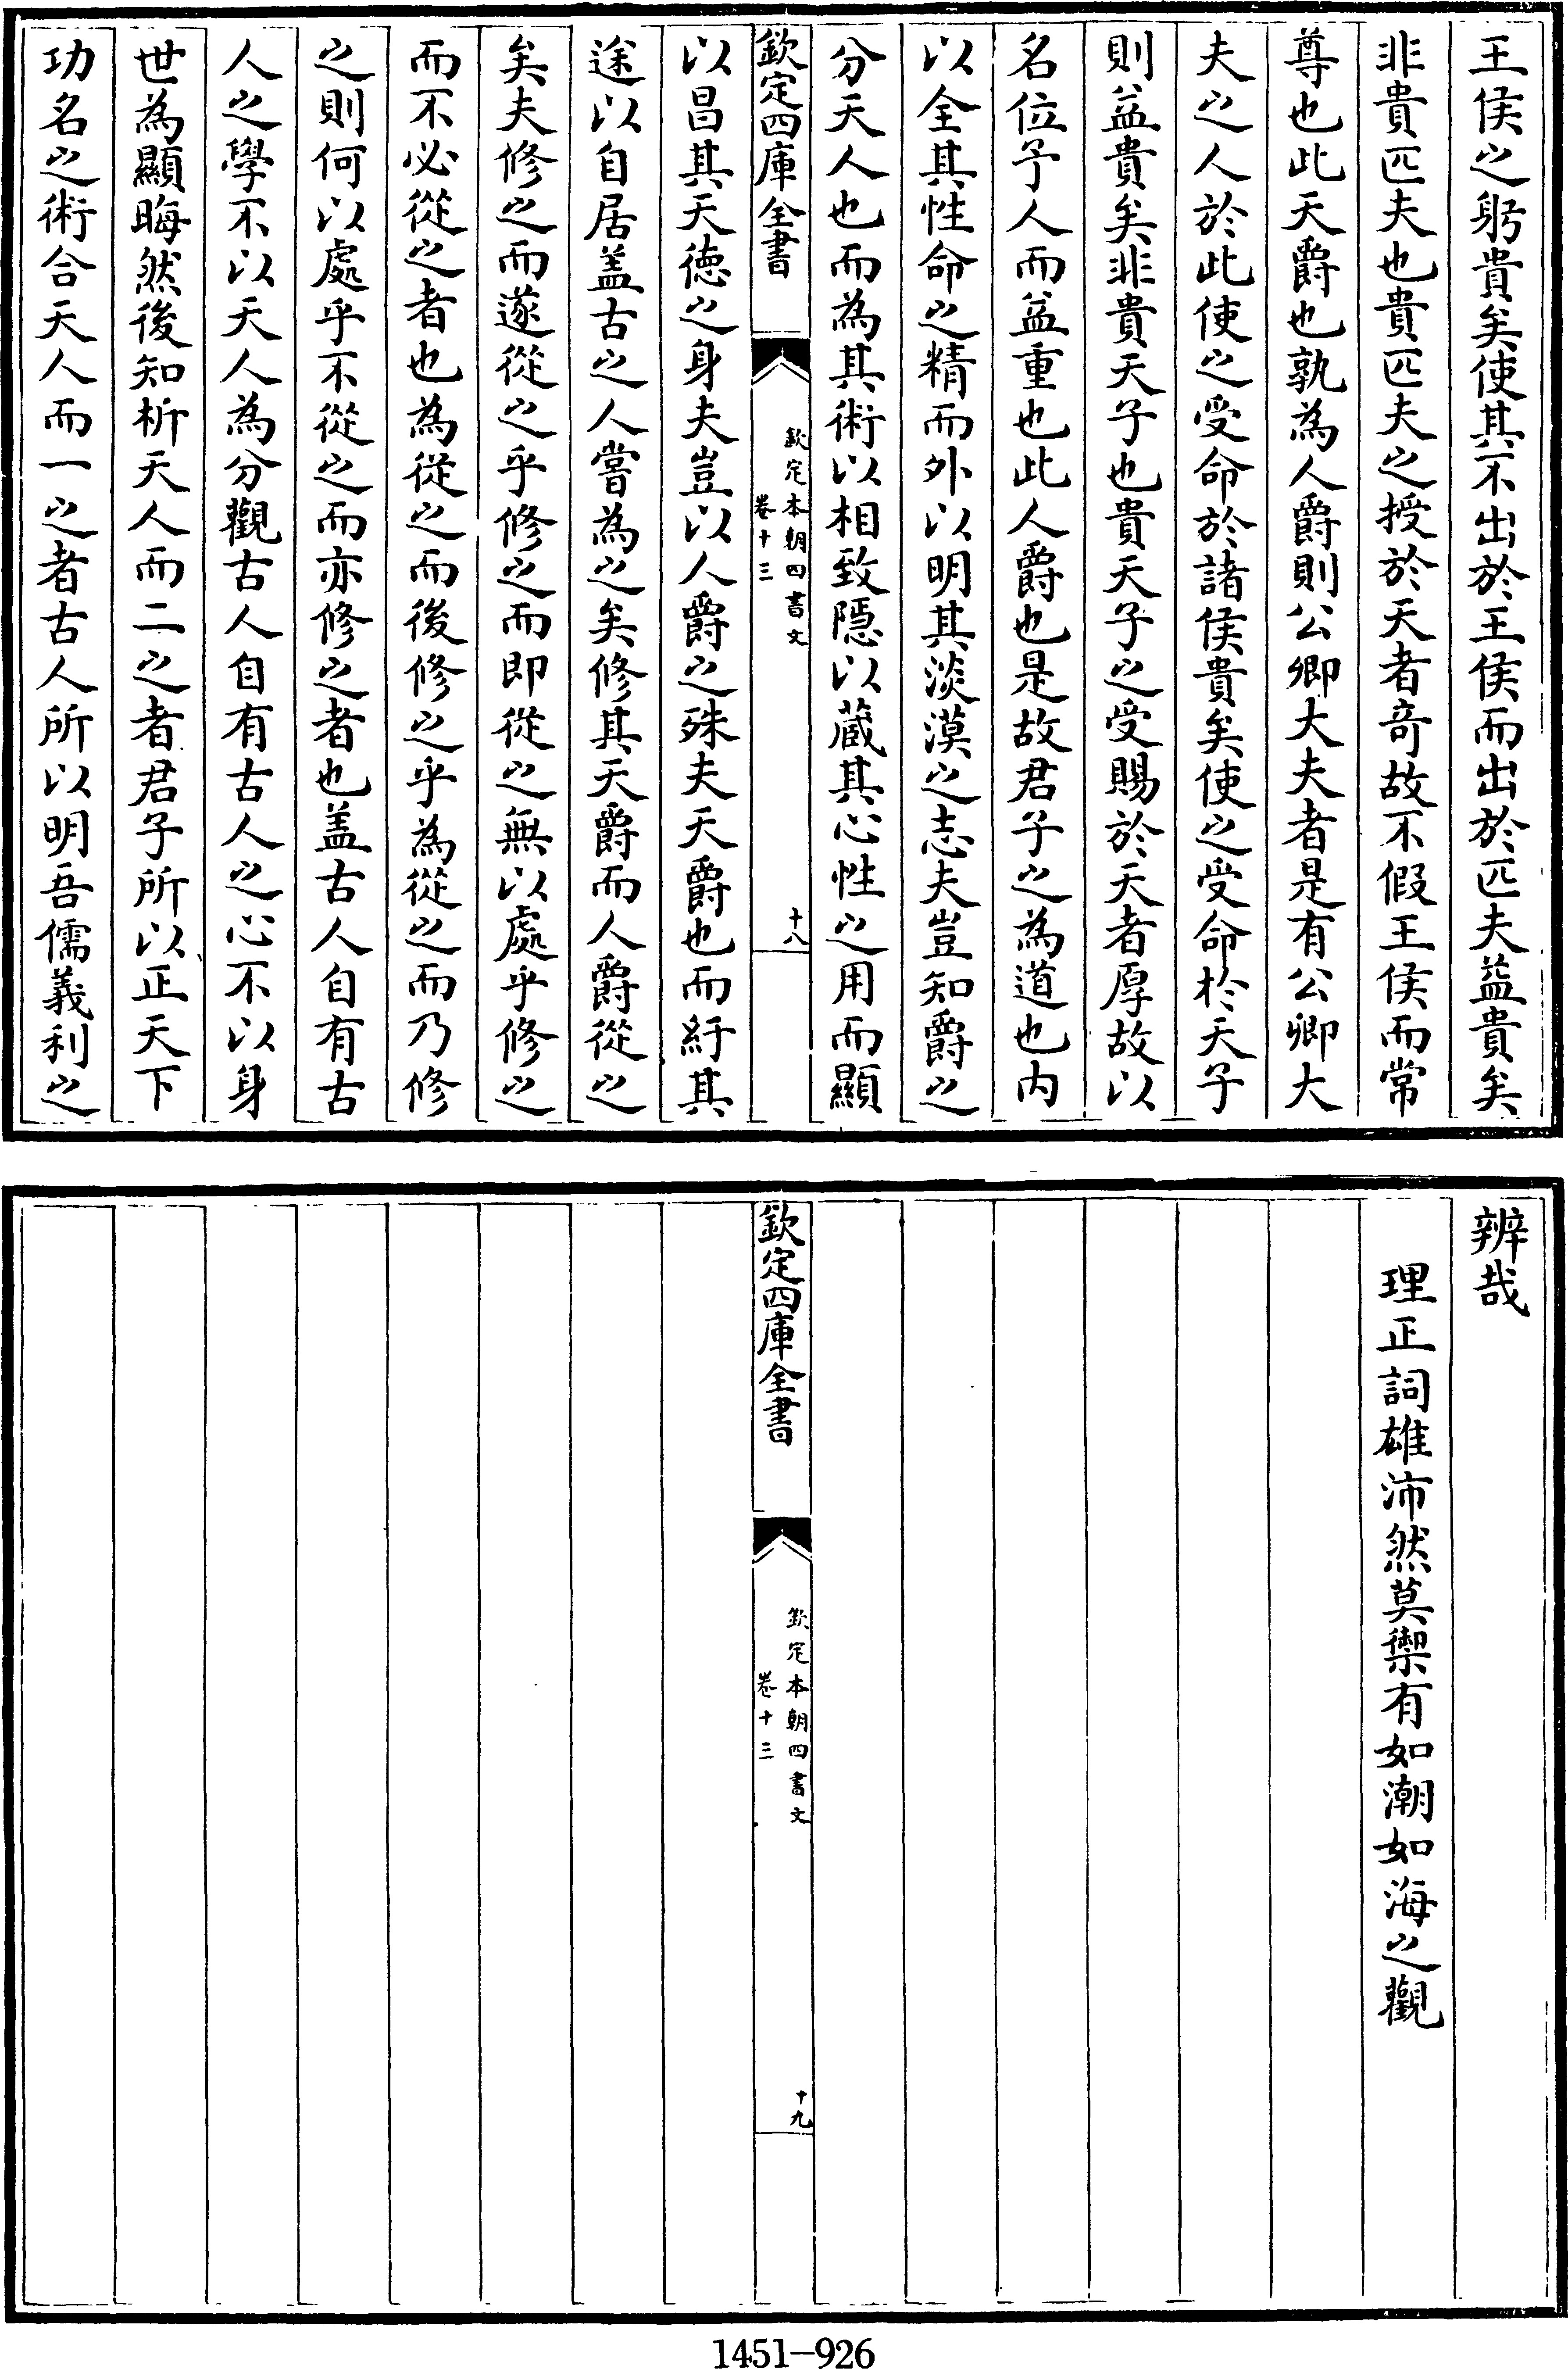 王侯之躬貴矣使其不出於王侯而出於匹夫益貴矣
非貴匹夫也貴匹夫之授於天者竒故不假王侯而常
尊也此天爵也孰為人爵則公卿大夫者是有公卿大
夫之人於此使之受命於諸侯貴矣使之受命於天子
則益貴矣非貴天子也貴天子之受賜於天者厚故以
名位予人而益重也此人爵也是故君子之為道也内
以全其性命之精而外以明其淡漠之志夫豈知爵之
分天人也而為其術以相致隱以蔵其心性之用而顯
欽定四庫全書
欽定本朝四書文
卷十三
十八
以昌其天徳之身夫豈以人爵之殊夫天爵也而紆其
途以自居盖古之人嘗為之矣修其天爵而人爵從之
矣夫修之而遂從之乎修之而即從之無以處乎修之
而不必從之者也為従之而後修之乎為從之而乃修
之則何以處乎不從之而亦修之者也盖古人自有古
人之學不以天人為分觀古人自有古人之心不以身
世為顯晦然後知析天人而二之者君子所以正天下
功名之術合天人而一之者古人所以明吾儒義利之
辨哉
理正詞雄沛然莫禦有如潮如海之觀
欽定四庫全書
欽定本朝四書文
卷十三
十九
1451-926